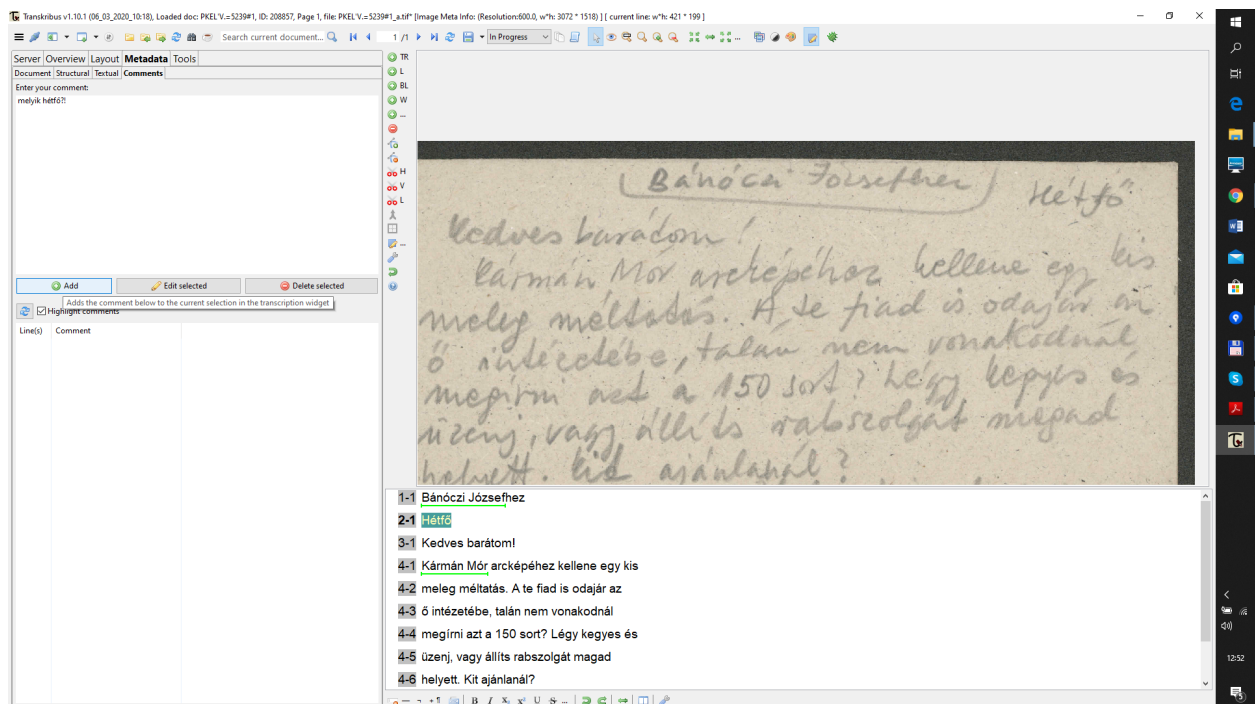 Transkribus v1.10.1 (06_03_2020_10:18), Loaded doc: PKEL'V.=5239#1, ID: 208857, Page 1, file: PKEL'V.=5239#1_a.tif* [Image Meta Info: (Resolution:600.0, w*h: 3072 * 1518) ] [ current line: w*h: 421 * 199 ]
Search current document...
1 /1
In Progress
Server Overview Layout Metadata Tools
Document Structural Textual Comments
Enter your comment:
melyik hétfő?!
Add
Edit selected
Delete selected
Adds the comment below to the current selection in the transcription widget
Highlight comments
Line(s) Comment
TR
L
BL
W
...
H
V
L
...
Bánóczi Józsefhez
Hétfő
Kedves barátom!
Kármán Mór arcképéhez kellene egy kis
meleg méltatás. A te fiad is odajár az
ő intézetébe, talán nem vonakodnál
megírni azt a 150 sort? Légy kegyes és
üzenj, vagy állíts rabszolgát magad
helyett. Kit ajánlanál?
1-1 Bánóczi Józsefhez
2-1 Hétfő
3-1 Kedves barátom!
4-1 Kármán Mór arcképéhez kellene egy kis
4-2 meleg méltatás. A te fiad is odajár az
4-3 ő intézetébe, talán nem vonakodnál
4-4 megírni azt a 150 sort? Légy kegyes és
4-5 üzenj, vagy állíts rabszolgát magad
4-6 helyett. Kit ajánlanál?
B I X₁ X² U S ...
12:52
5